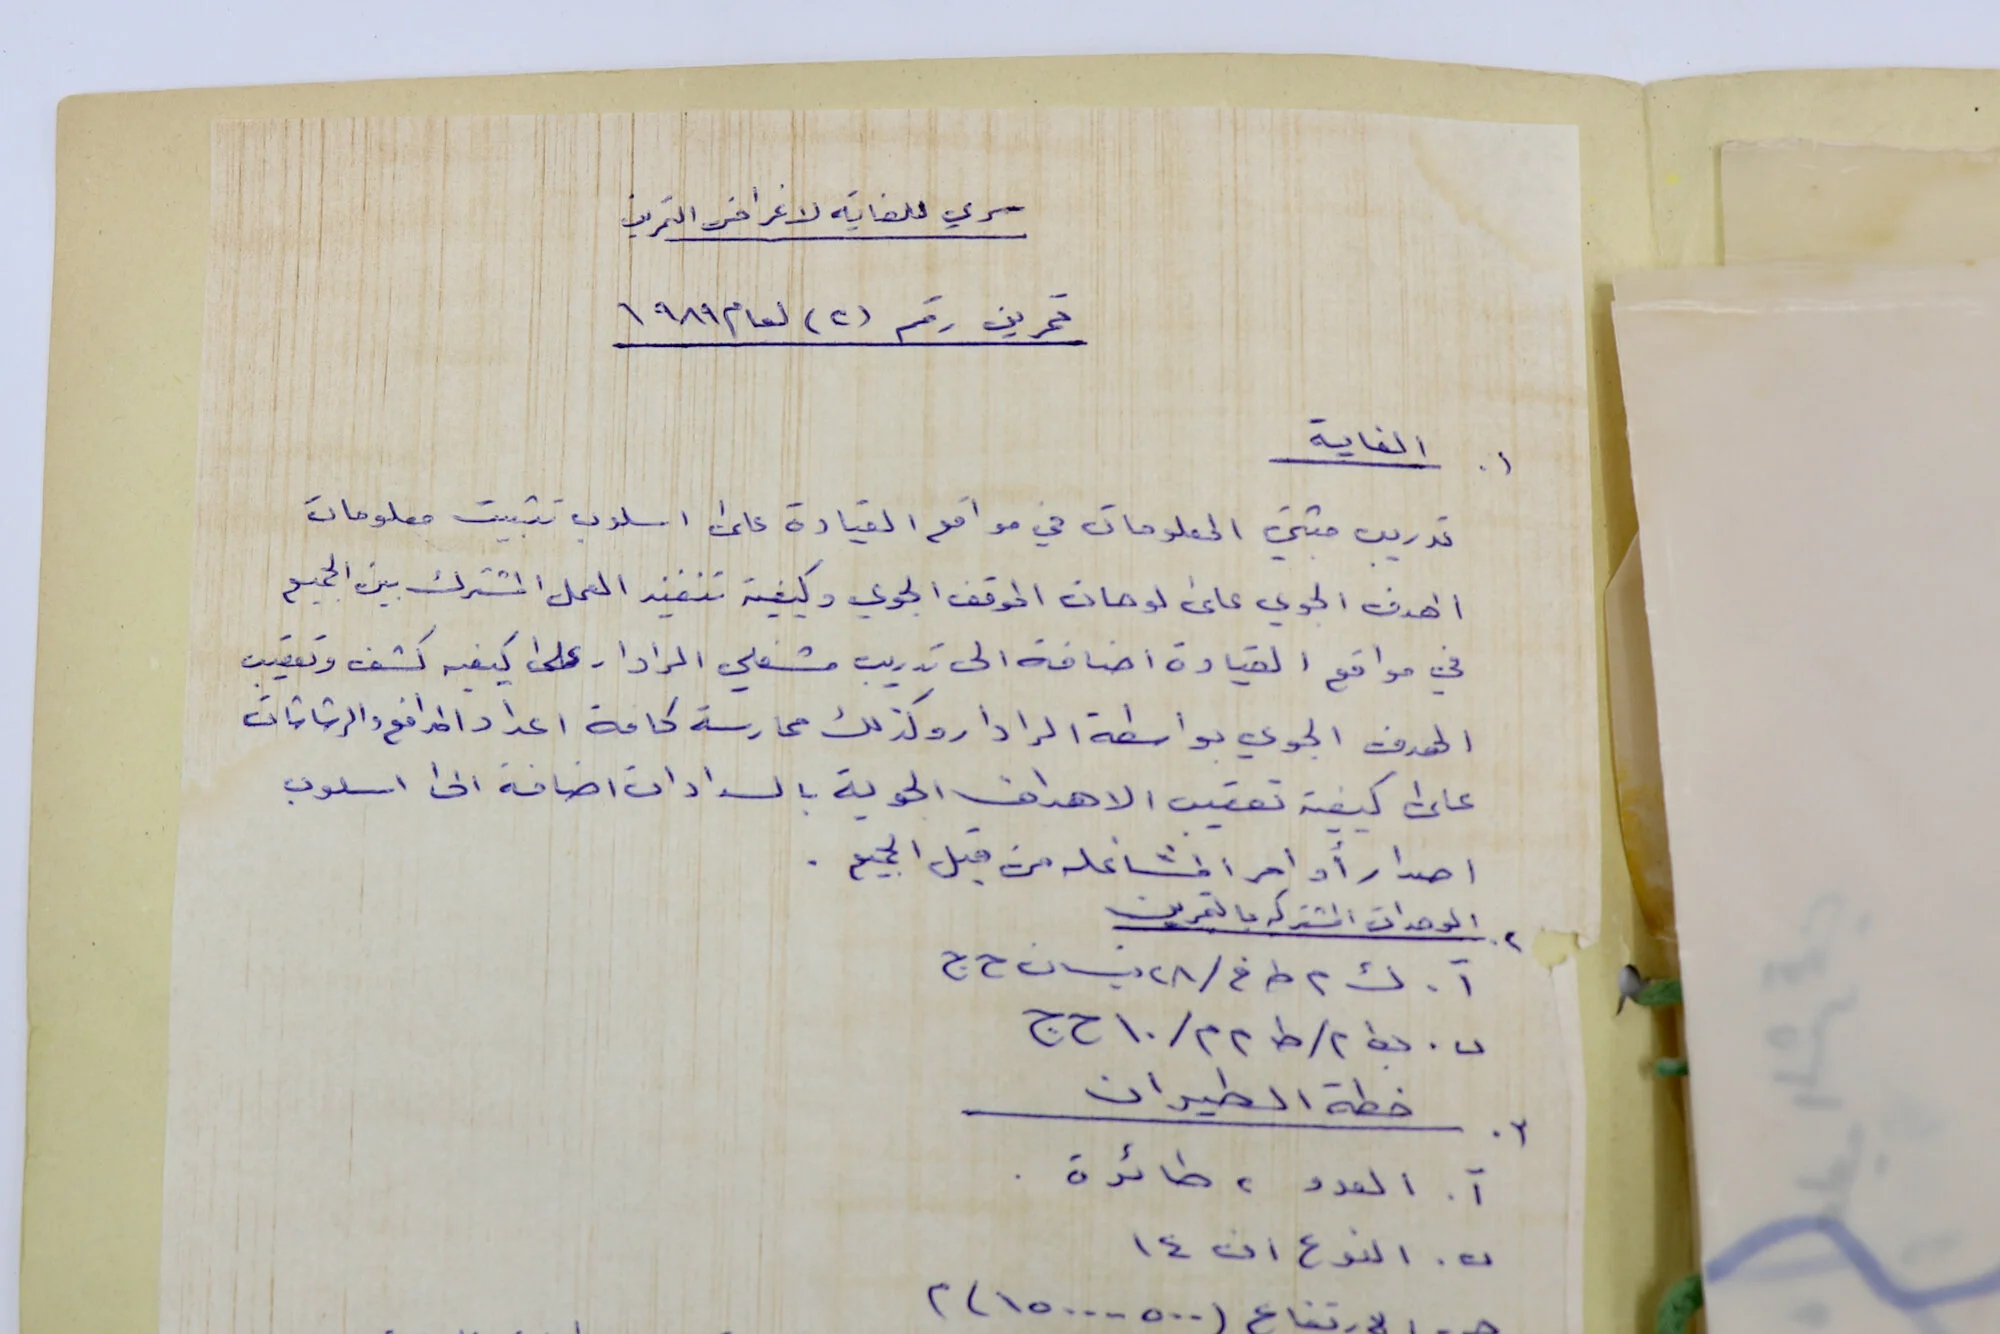 سري للغاية لاغراض التمرين
تمرين رقم (٢) لعام ١٩٨٩
١. الغاية
تدريب مثبتي المعلومات في مواقع القيادة على اسلوب تثبيت معلومات
الهدف الجوي على لوحات الموقف الجوي وكيفية تنفيذ العمل المشترك بين الجميع
في مواقع القيادة اضافة الى تدريب مشغلي الرادار على كيفيه كشف وتعقيب
الهدف الجوي بواسطة الرادار وكذلك ممارسة كافة اعداد المدافع والرشاشات
على كيفية تعقيب الاهداف الجوية بالسدادات اضافة الى اسلوب
اصدار أوامر المشاغله من قبل الجميع .
٢. الوحدات المشتركه بالتمرين
آ. ك ٢ ط خ/٢٨ نيسان ح ج
ب. بط ٢/ط ٢٢ م/١٠ ح ج
٣. خطة الطيران
آ. العدد ٢ طائرة .
ب. النوع ان ١٤
جـ. الارتفاع (٥٠٠-١٥٠٠) م